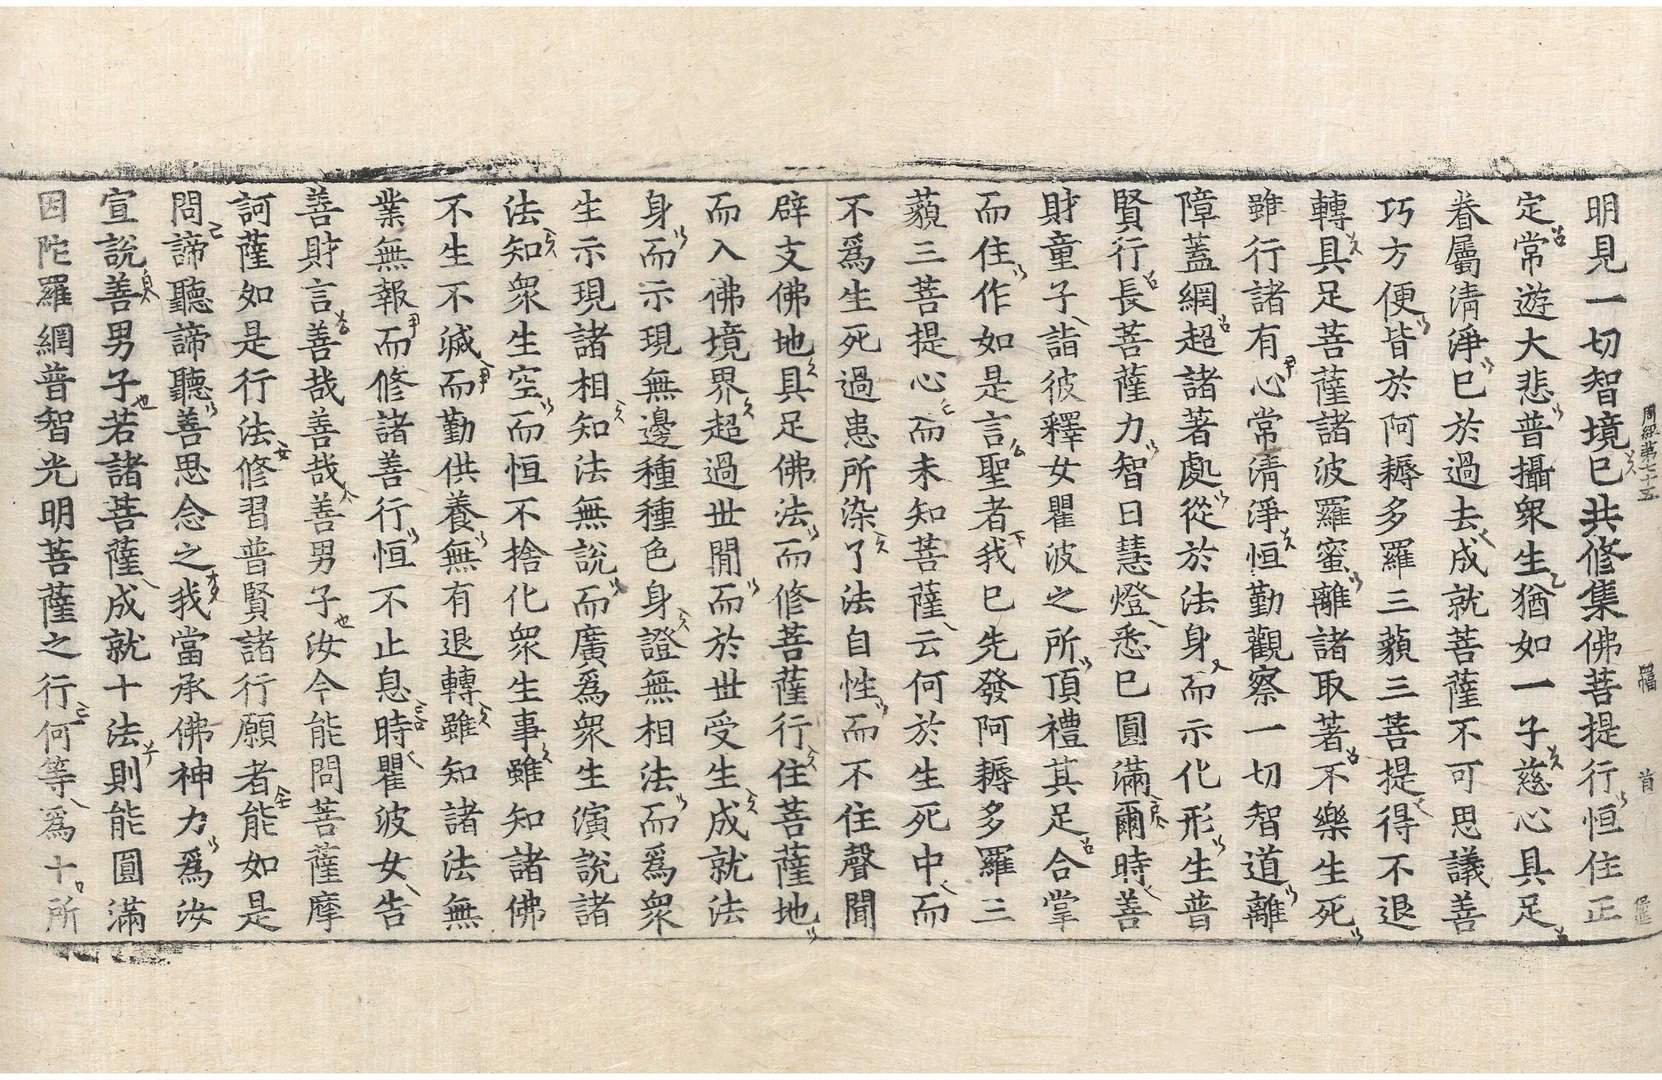 周經第七十五 幅 首
明見一切智境已共修集佛菩提行恒住正
定常遊大悲普攝衆生猶如一子慈心具足
眷屬淸淨已於過去成就菩薩不可思議善
巧方便皆於阿耨多羅三藐三菩提得不退
轉具足菩薩諸波羅蜜離諸取著不樂生死
雖行諸有心常淸淨恒勤觀察一切智道離
障蓋網超諸著處從於法身而示化形生普
賢行長菩薩力智日慧燈悉已圓滿爾時善
財童子詣彼釋女瞿波之所頂禮其足合掌
而住作如是言聖者我已先發阿耨多羅三
藐三菩提心而未知菩薩云何於生死中而
不爲生死過患所染了法自性而不住聲聞
辟支佛地具足佛法而修菩薩行住菩薩地
而入佛境界超過世間而於世受生成就法
身而示現無邊種種色身證無相法而爲衆
生示現諸相知法無說而廣爲衆生演說諸
法知衆生空而恒不捨化衆生事雖知諸佛
不生不滅而勤供養無有退轉雖知諸法無
業無報而修諸善行恒不止息時瞿波女告
善財言善哉善哉善男子汝今能問菩薩摩
訶薩如是行法修習普賢諸行願者能如是
問諦聽諦聽善思念之我當承佛神力爲汝
宣說善男子若諸菩薩成就十法則能圓滿
因陀羅網普智光明菩薩之行何等爲十所